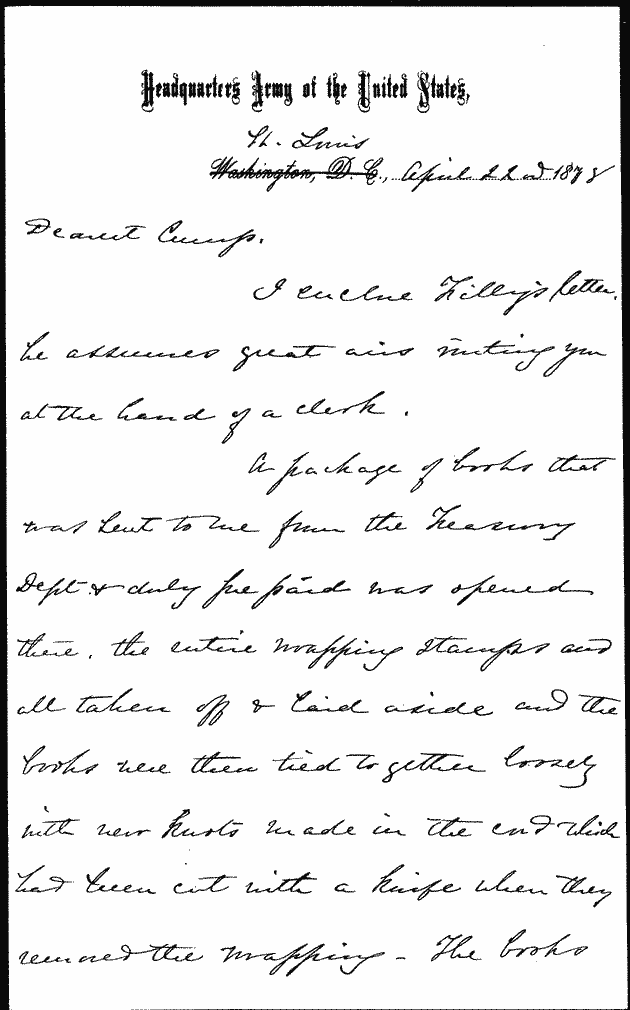 Headquarters Army of the United States,
St. Louis
Washington, D. C., April 22nd 1878
Dearest Cump.
I enclose Filley's letter.
he assumes great airs writing you
at the hand of a clerk.
A package of books that
was sent to me from the Treasury
Dept & duly prepaid was opened
there. the entire wrapping stamps and
all taken off & laid aside and the
books were then tied together loosely
with new knots made in the cord which
had been cut with a knife when they
removed the wrapping - The books